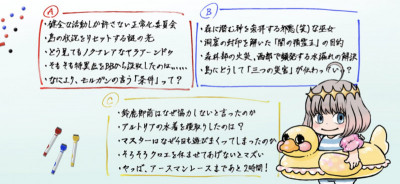 A
・健全な活動しか許さない正常化委員会
・島の状況をリセットする謎の光
・どう見てもノクナレアなサヴァー・ンドゥ
・そもそも特異点をBBから没収したのは……
・なにより、モルガンの言う「条件」って？
B
・森に潜む粋を束ねする邪悪（笑）な巫女
・洞窟の封印を解いた「闇の精霊王」の目的
・森林枠の火災、西部で頻発する水漏れの解決
・島にどうして「三つの災害」が伝わっていい？
C
・鈴鹿御前はなぜ協力しないと言ったのか
・アルトリアの水着を横取りしたのは？
・マスターはなぜ今も遊びまくってしまったのか
・そろそろクロエを休ませてあげないとマズい
・ヤッば、アースマンレースまであと2時間！